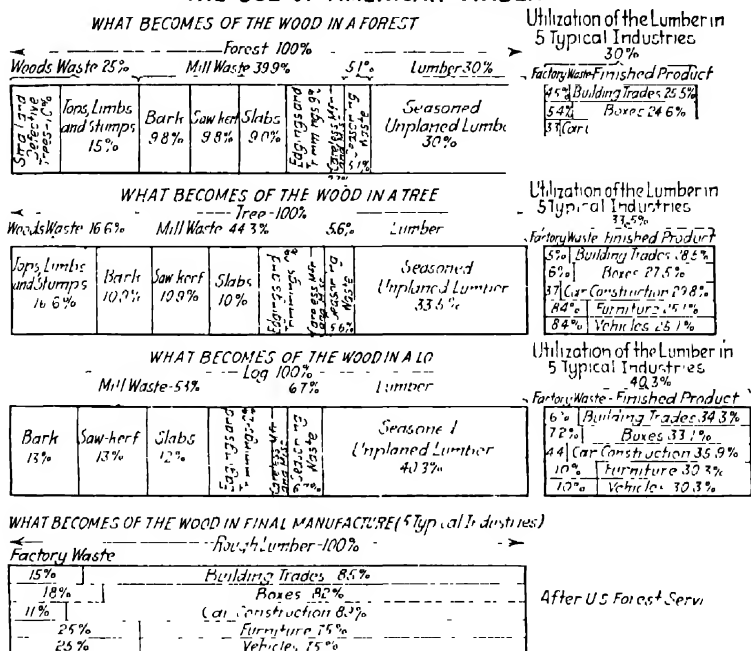 WHAT BECOMES OF THE WOOD IN A FOREST
Forest 100%
Woods Waste 25% Mill Waste 39.9% 5.1% Lumber 30%
Tops, Limbs and Stumps 15%
Bark 9.8%
Saw kerf 9.8%
Slabs 9.0%
Edgings and
5.1%
Seasoned Unplaned Lumbe 30%
Utilization of the Lumber in
5 Typical Industries
30%
Factory Waste-Finished Product
4.5% Building Trades 25.5%
5.4% Boxes 24.6%
3.3 Car
WHAT BECOMES OF THE WOOD IN A TREE
Tree-100%
Woods Waste 16.6% Mill Waste 44.3% 5.6% Lumber
Tops, Limbs and Stumps 16.6%
Bark
Saw kerf 10.9%
Slabs 10%
Edgings and
5.6%
Seasoned Unplaned Lumber 33.5%
Utilization of the Lumber in
5 Typical Industries
33.5%
Factory Waste Finished Product
5% Building Trades
6% Boxes 27.5%
3.7 Car Construction 29.8%
8.4% Furniture 25.1%
8.4% Vehicles 25.1%
WHAT BECOMES OF THE WOOD IN A LO
Log 100%
Mill Waste-53% 6.7% Lumber
Bark 13%
Saw-kerf 13%
Slabs 12%
Edgings and
Seasoned Unplaned Lumber 40.3%
Utilization of the Lumber in
5 Typical Industries
40.3%
Factory Waste-Finished Product
6% Building Trades 34.3%
7.2% Boxes 33.1%
4.4 Car Construction 35.9%
10% Furniture 30.3%
10% Vehicles 30.3%
WHAT BECOMES OF THE WOOD IN FINAL MANUFACTURE (5 Typical Industries)
Rough Lumber-100%
Factory Waste
15% Building Trades 85%
18% Boxes 82%
11% Car Construction
25% Furniture 75%
25% Vehicles 75%
After U S Forest Servi